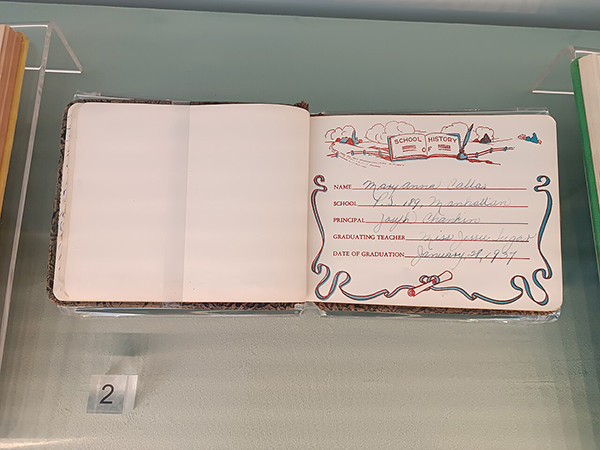 SCHOOL HISTORY
OF
NAME Mary Anna Callas
SCHOOL P.S. 189, Manhattan
PRINCIPAL Joseph Chankin
GRADUATING TEACHER Miss Jessie
DATE OF GRADUATION January 28, 1937
2